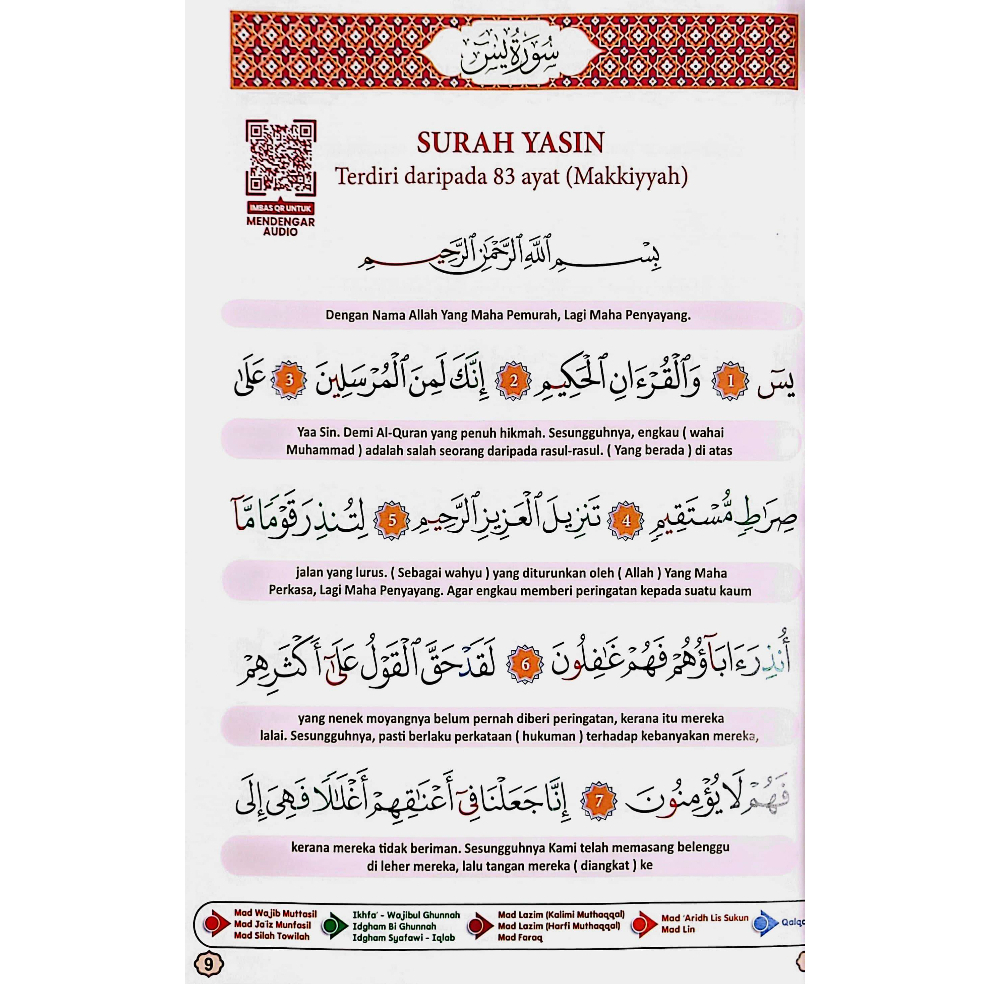 سُورَةُ يسٓ
SURAH YASIN
Terdiri daripada 83 ayat (Makkiyyah)
IMBAS QR UNTUK
MENDENGAR
AUDIO
بِسْمِ ٱللَّهِ ٱلرَّحْمَٰنِ ٱلرَّحِيمِ
Dengan Nama Allah Yang Maha Pemurah, Lagi Maha Penyayang.
يسٓ 1 وَٱلْقُرْءَانِ ٱلْحَكِيمِ 2 إِنَّكَ لَمِنَ ٱلْمُرْسَلِينَ 3 عَلَىٰ
Yaa Sin. Demi Al-Quran yang penuh hikmah. Sesungguhnya, engkau ( wahai
Muhammad ) adalah salah seorang daripada rasul-rasul. ( Yang berada ) di atas
صِرَٰطٍ مُّسْتَقِيمٍ 4 تَنزِيلَ ٱلْعَزِيزِ ٱلرَّحِيمِ 5 لِتُنذِرَ قَوْمًا مَّآ
jalan yang lurus. ( Sebagai wahyu ) yang diturunkan oleh ( Allah ) Yang Maha
Perkasa, Lagi Maha Penyayang. Agar engkau memberi peringatan kepada suatu kaum
أُنذِرَ ءَابَآؤُهُمْ فَهُمْ غَٰفِلُونَ 6 لَقَدْ حَقَّ ٱلْقَوْلُ عَلَىٰٓ أَكْثَرِهِمْ
yang nenek moyangnya belum pernah diberi peringatan, kerana itu mereka
lalai. Sesungguhnya, pasti berlaku perkataan ( hukuman ) terhadap kebanyakan mereka,
فَهُمْ لَا يُؤْمِنُونَ 7 إِنَّا جَعَلْنَا فِىٓ أَعْنَٰقِهِمْ أَغْلَٰلًا فَهِىَ إِلَى
kerana mereka tidak beriman. Sesungguhnya Kami telah memasang belenggu
di leher mereka, lalu tangan mereka ( diangkat ) ke
Mad Wajib Muttasil
Mad Ja'iz Munfasil
Mad Silah Towilah
Ikhfa' - Wajibul Ghunnah
Idgham Bi Ghunnah
Idgham Syafawi - Iqlab
Mad Lazim (Kalimi Muthaqqal)
Mad Lazim (Harfi Muthaqqal)
Mad Farq
Mad 'Aridh Lis Sukun
Mad Lin
9